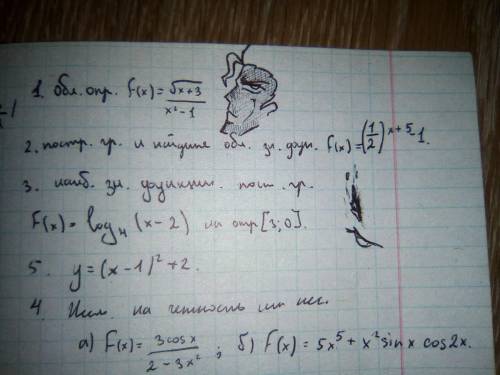 1. обл. опр. f(x) = √x+3 / x² - 1
2. постр. гр. и найдите обл. зн. функ. f(x) = (1/2)^x+5 - 1.
3. наиб. зн. функции. пост. гр.
F(x) = log₄ (x - 2) на отр [3; 0].
5. y = (x - 1)² + 2.
4 Иссл. на четность или неч.
а) F(x) = 3cosx / 2 - 3x² ; б) f(x) = 5x⁵ + x² sin x cos 2x.